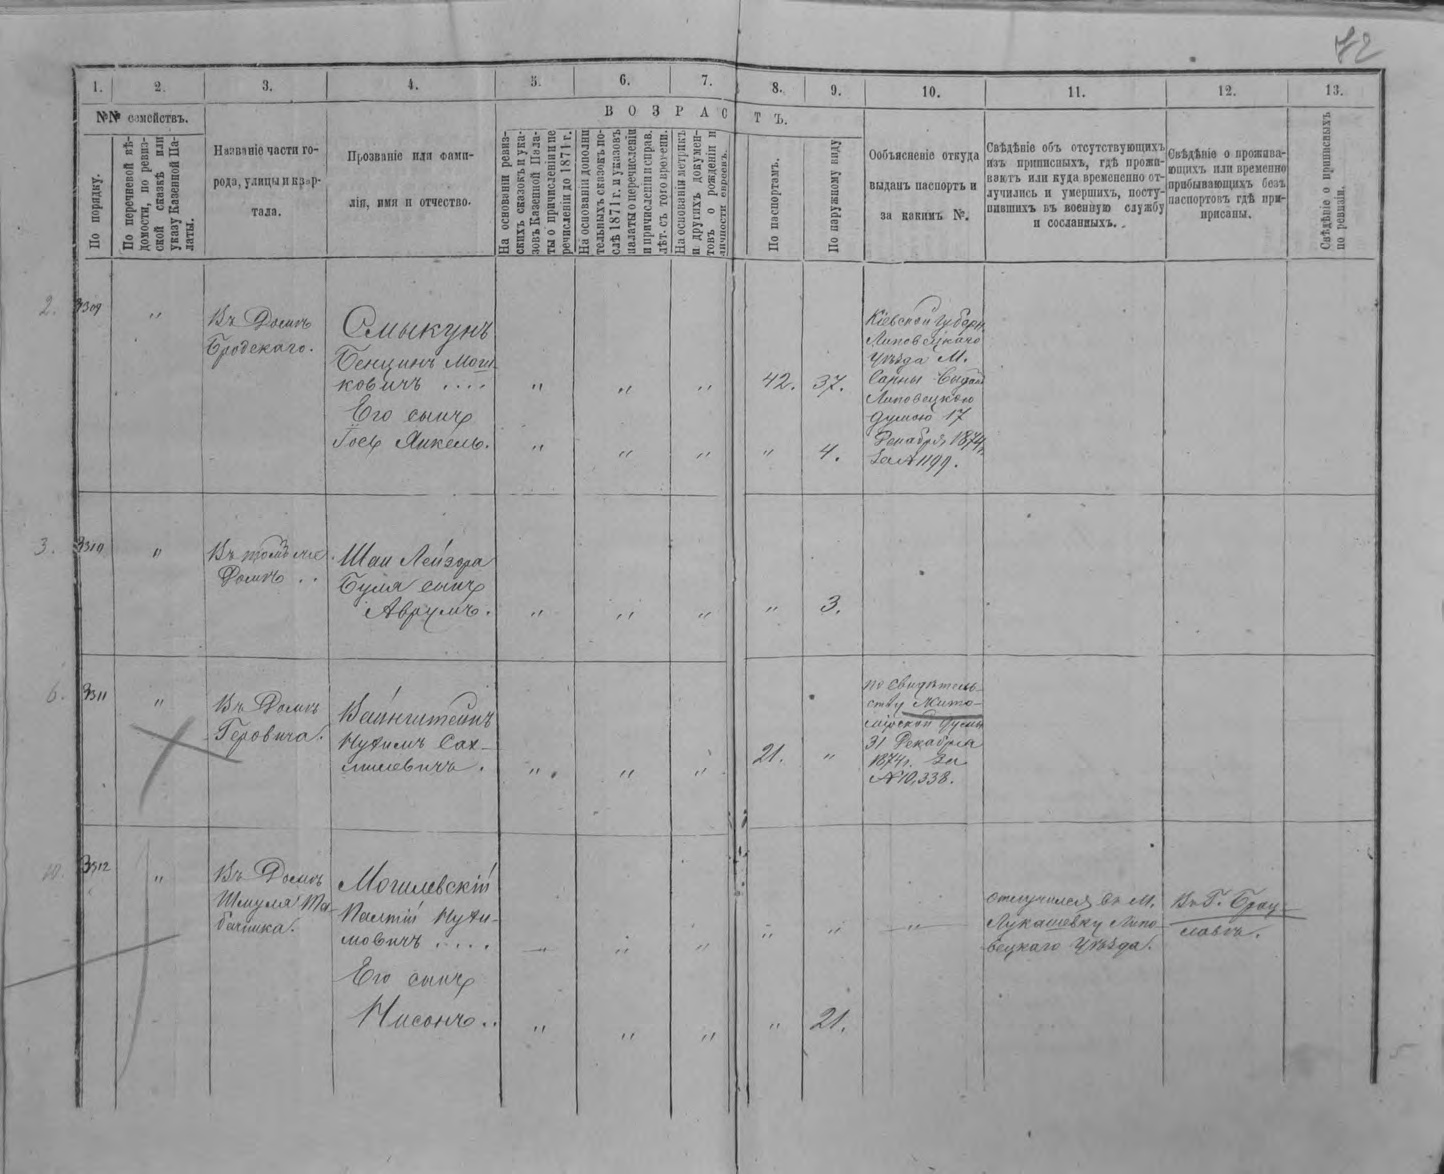 72
1. 2. 3. 4. 5. 6. 7. 8. 9. 10. 11. 12. 13.
№№ семействъ.
ВОЗРАСТЪ.
По порядку.
По перечневой вѣ-
домости, по ревиз-
ской сказкѣ или
указу Казенной Па-
латы.
Названіе части го-
рода, улицы и квар-
тала.
Прозваніе или фами-
лія, имя и отчество.
На основаніи ревиз-
скихъ сказокъ и ука-
зовъ Казенной Пала-
ты о причисленіи пе
речисленіи до 1871 г.
На основаніи дополни
тельныхъ сказокъ по-
слѣ 1871 г. и указовъ
палаты о перечисленіи
и причисленіи и справ.
лѣт. съ того времени.
На основаніи метрикъ
и другихъ докумен-
товъ о рожденіи и
личности евреевъ.
По паспортамъ.
По наружному виду
Ообъясненіе откуда
выданъ паспортъ и
за какимъ №.
Свѣдѣніе объ отсутствующихъ
изъ приписныхъ, гдѣ прожи-
ваютъ или куда временно от-
лучились и умершихъ, посту-
пившихъ въ военную службу
и сосланныхъ.
Свѣдѣніе о прожива-
ющихъ или временно
прибывающихъ безъ
паспортовъ гдѣ при-
писаны.
Свѣдѣніе о приписныхъ
по ревизіи.
2. 3309 "
Въ Домѣ
Бродскаго.
Смыкунъ
Бенцинъ Мош
ковичъ .... " " " 42. 37.
Его сынъ
Іось Янкель. " " " " 4.
Кіевской Губерн.
Липовецкаго
Уѣзда М.
Сарны Выдан
Липовецкою
Думою 17
Декабря 1874 г.
За № 1199.
3. 3310 "
Въ томъ же
Домѣ ..
Шаи Лейзора
Буля сынъ
Аврумъ. " " " " 3.
6. 3311 "
Въ Домѣ
Геровича.
Вайнштейнъ
Нухимъ Сах-
милевичъ. " " " 21. "
по свидѣтель-
ству Жито-
мірской Думы
31 Декабря
1874 г. За
№ 10,338.
10. 3312 "
Въ Домѣ
Шмуля Та-
бачника.
Могилевскій
Палтій Нухи-
мовичъ .... " " " " " "
Его сынъ
Нисонъ.. " " " " 21.
отлучился въ М.
Лукашевку Липо-
вецкаго Уѣзда.
Въ Г. Брац-
лавѣ.